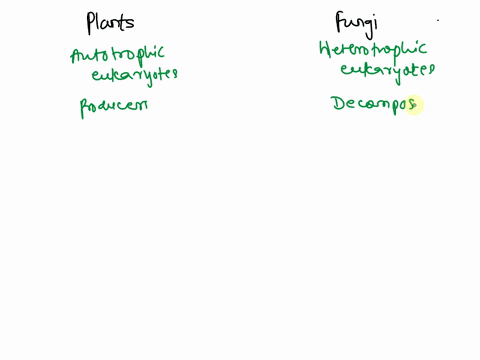 Plants
Fungi
Autotrophic
eukaryotes
Heterotrophic
eukaryotes
Producers
Decompos